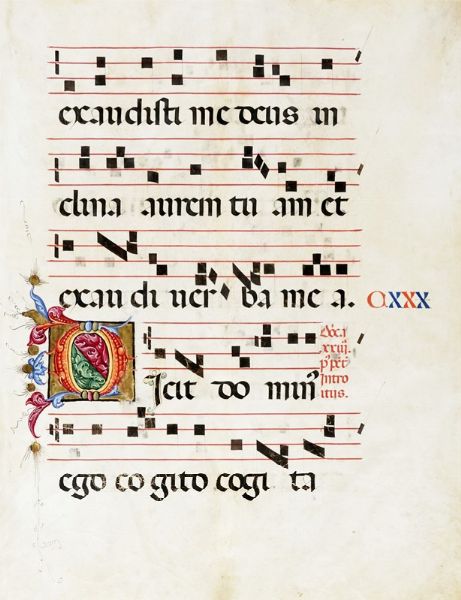 exaudisti me deus in
clina aurem tu am et
exau di ver ba me a. CXXX
Dicit do minꝰ
Dōca
xxiij.
p⁹ pēt
Intro
itus.
ego co gito cogi ta